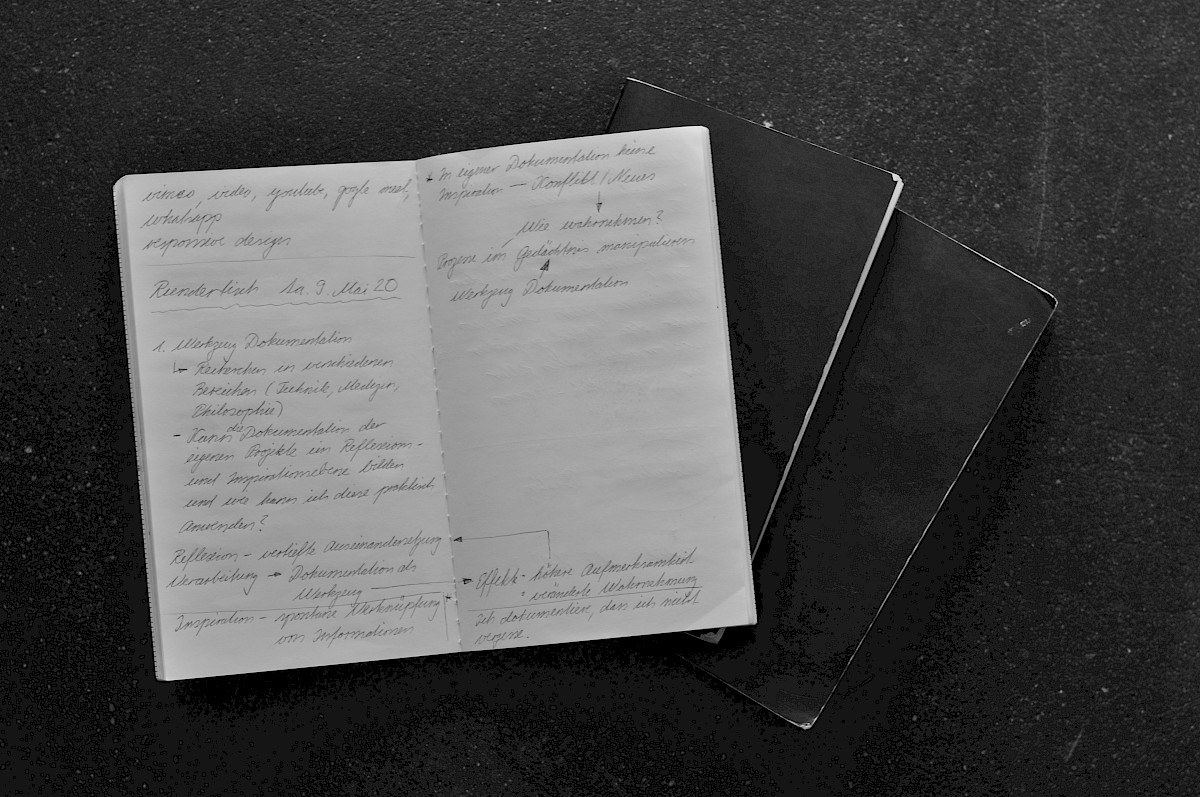 vimeo, video, youtube, google meet,
whatsapp
responsive design
Rundertisch Sa 9. Mai 20
1. Werkzeug Dokumentation
Recherchen in verschiedenen
Bereichen (Technik, Medizin,
Philosophie)
- Kann die Dokumentation der
eigenen Projekte ein Reflexions-
und Inspirationsebene bilden
und wie kann ich diese praktisch
Anwenden?
Reflexion - vertiefte Auseinandersetzung
Verarbeitung → Dokumentation als
Werkzeug
Inspiration - spontane Verknüpfung
von Informationen
In eigener Dokumentation keine
Inspiration — Konflikt / Neues
Wie wahrnehmen?
Prozesse im Gedächtnis manipulieren
Werkzeug Dokumentation
Effekte - höhere Aufmerksamkeit
veränderte Wahrnehmung
Ich dokumentiere, dass ich nicht
vergesse.